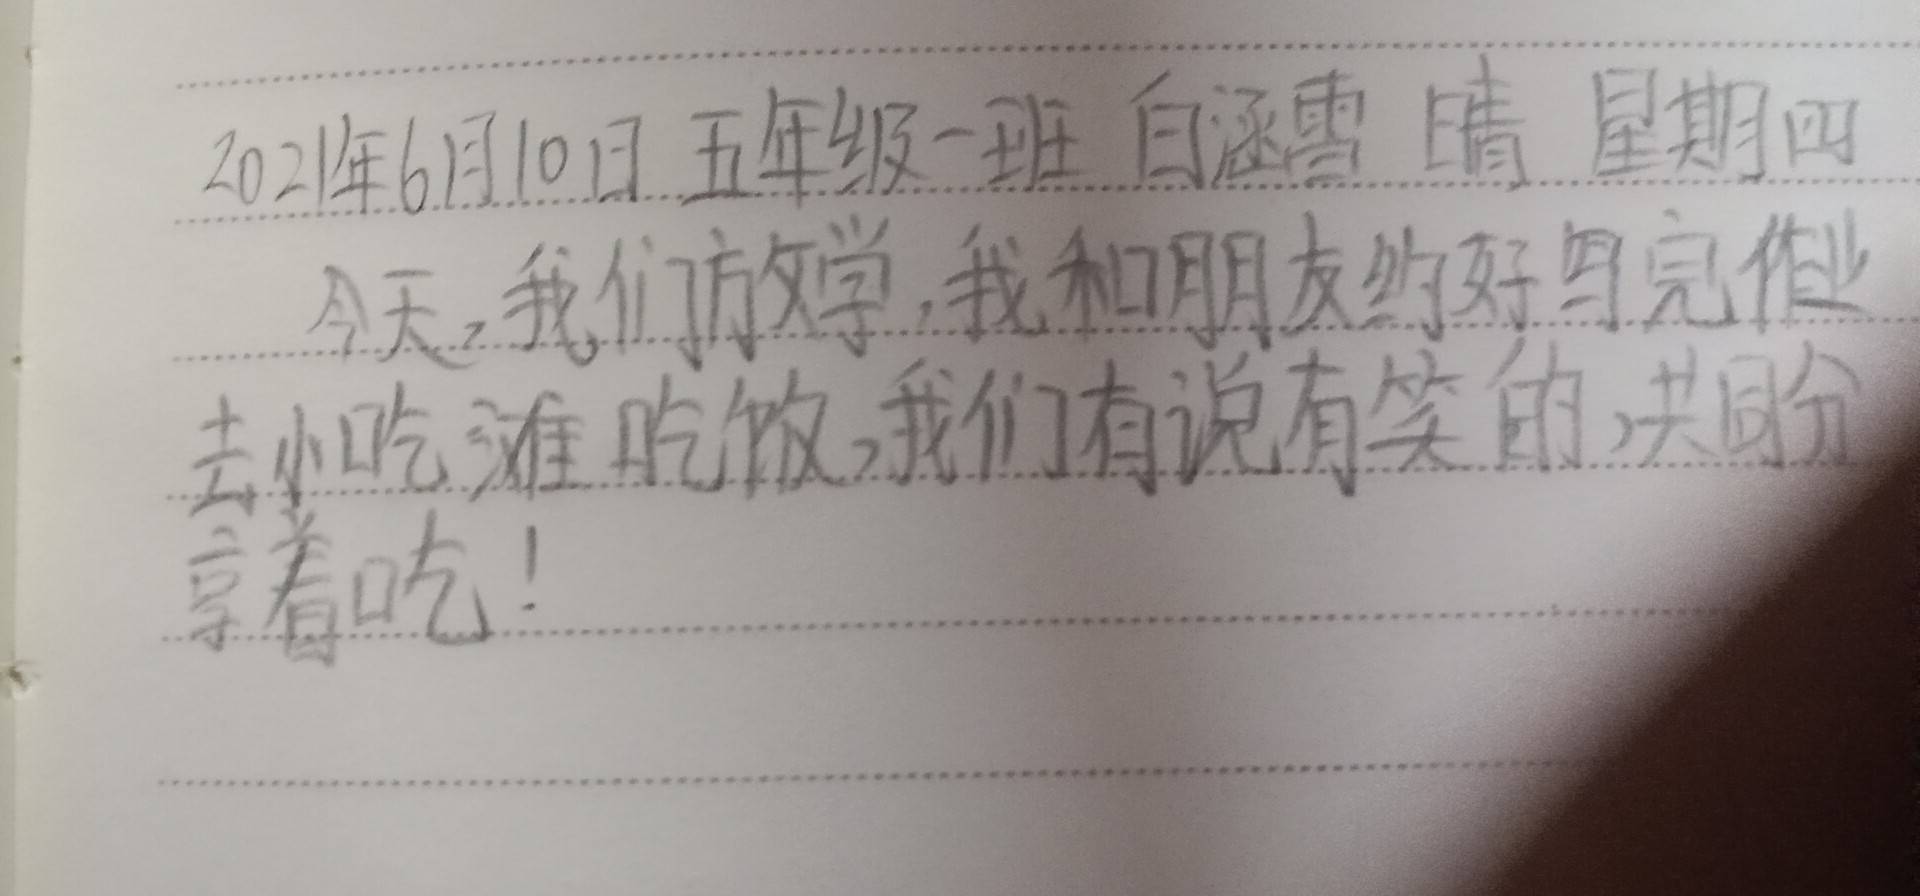 2021年6月10日 五年级一班 白涵雪 晴 星期四
今天，我们放学，我和朋友约好写完作业
去小吃滩吃饭，我们有说有笑的，共同分
享着吃！